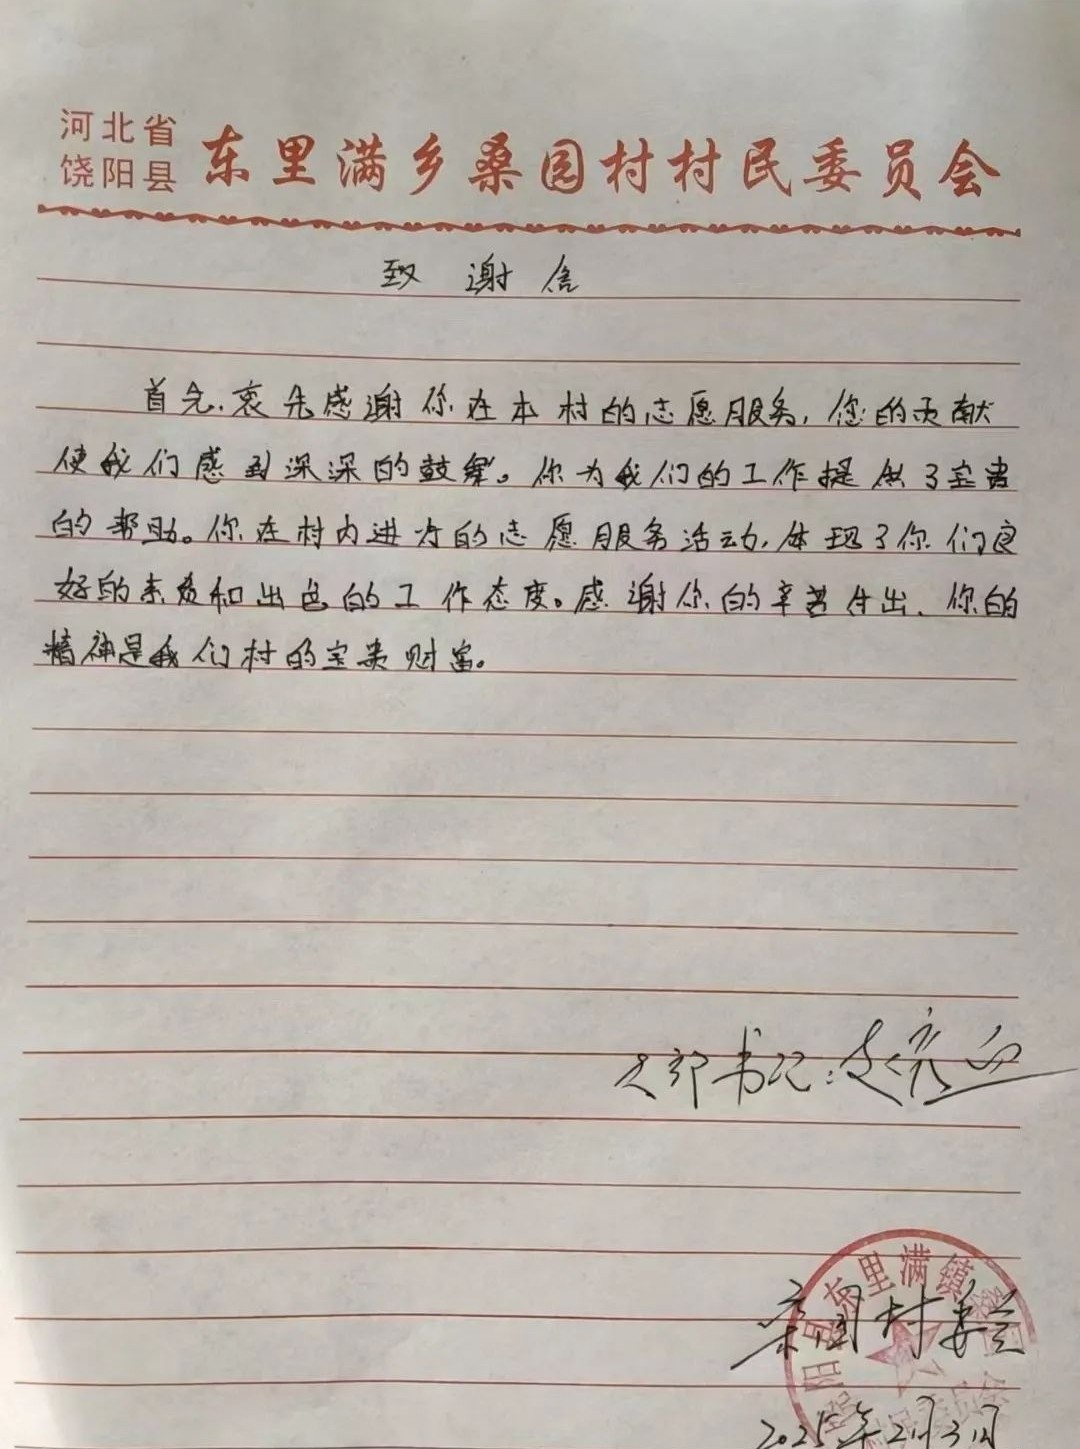 河北省
饶阳县
东里满乡桑园村村民委员会
致谢信
首先,衷先感谢你在本村的志愿服务,您的贡献
使我们感到深深的鼓舞。你为我们的工作提供了宝贵
的帮助。你在村内进行的志愿服务活动,体现了你们良
好的素质和出色的工作态度。感谢你的辛苦付出、你的
精神是我们村的宝贵财富。
支部书记:
桑园村委会
东里满镇
2025年2月3日